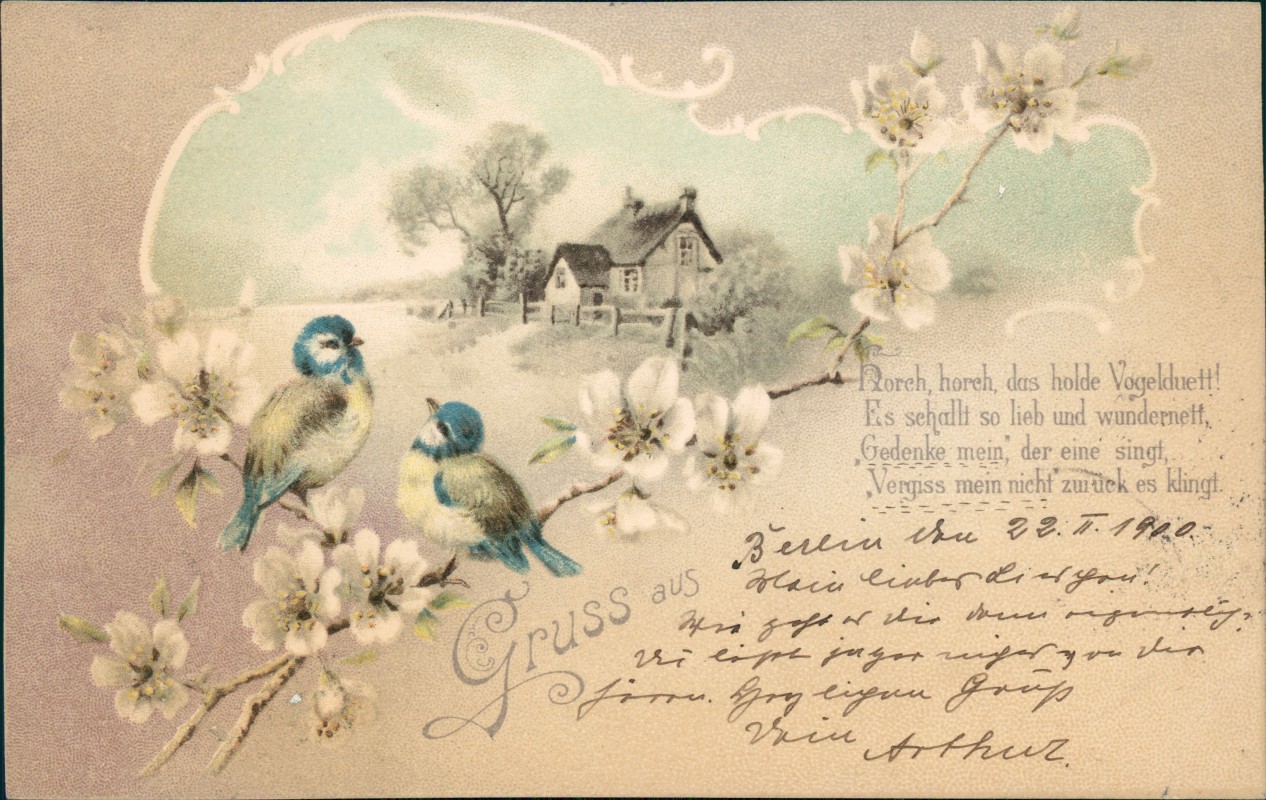 Horch, horch, das holde Vogelduett!
Es schallt so lieb und wundernett,
„Gedenke mein“, der eine singt,
„Vergiss mein nicht“ zurück es klingt.
Gruss aus
Berlin den 22. II. 1900.
Mein liebes
Wie geht es dir denn eigentlich?
Du läßt ja gar nichts von dir
hören. Herzlichen Gruß
Dein Arthur.